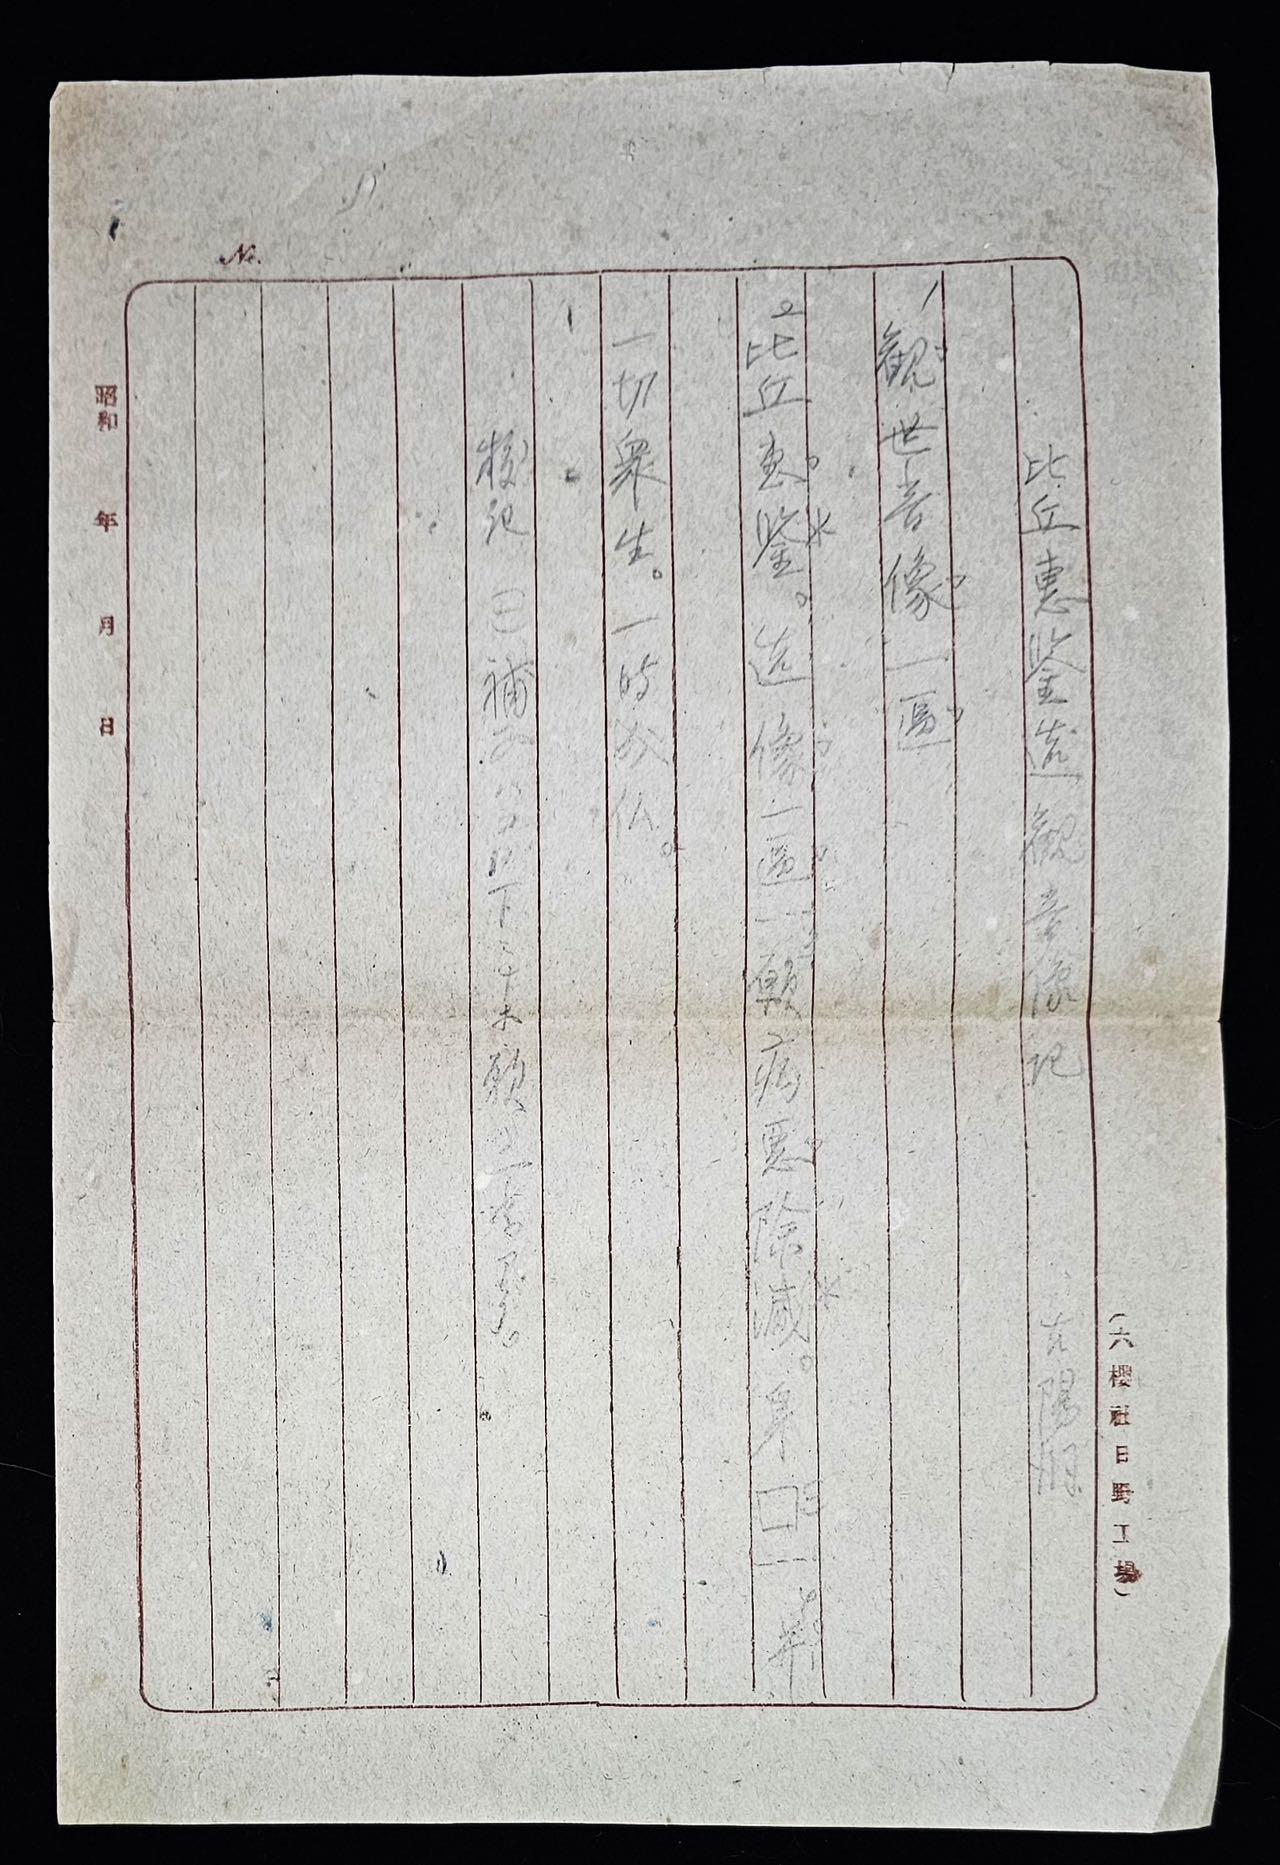 比丘惠鑒造觀音像記 古陽洞
1 觀世音像一區
2 比丘惠鑒。造像一區一願病惡除滅。早□一
一切衆生。一時成仏。
校記 (一)補
(六櫻社日野工場)
No.
昭和 年 月 日